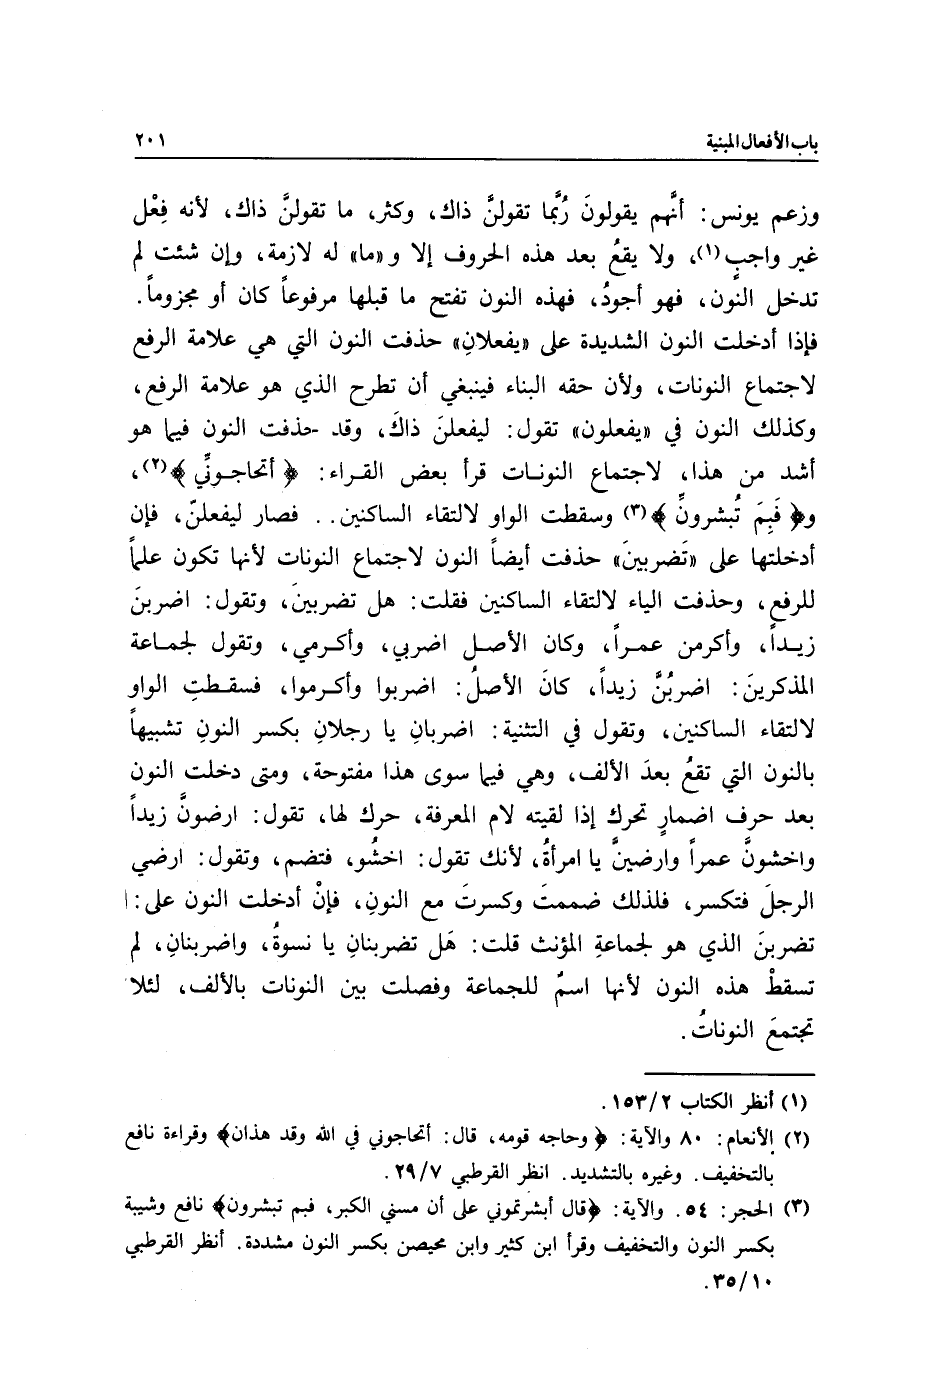 باب الأفعال المبنية ٢٠١
وزعم يونس: أنَّهم يقولونَ رُبَّما تقولنَّ ذاك، وكثر، ما تقولنَّ ذاك، لأنه فِعْل
غير واجبٍ(١)، ولا يقعُ بعد هذه الحروف إلا و«ما» له لازمة، وإن شئت لم
تدخل النون، فهو أجودُ، فهذه النون تفتح ما قبلها مرفوعاً كان أو مجزوماً.
فإذا أدخلت النون الشديدة على «يفعلانِ» حذفت النون التي هي علامة الرفع
لاجتماع النونات، ولأن حقه البناء فينبغي أن تطرح الذي هو علامة الرفع،
وكذلك النون في «يفعلون» تقول: ليفعلنَ ذاكَ، وقد حذفت النون فيما هو
أشد من هذا، لاجتماع النونات قرأ بعض القراء: ﴿أتحاجونِّي﴾(٢)،
و﴿فَبِمَ تُبشرونِّ﴾(٣) وسقطت الواو لالتقاء الساكنين.. فصار ليفعلنّ، فإن
أدخلتها على «تَضربينَ» حذفت أيضاً النون لاجتماع النونات لأنها تكون علماً
للرفع، وحذفت الياء لالتقاء الساكنين فقلت: هل تضربينَ، وتقول: اضربنَ
زيداً، وأكرمن عمراً، وكان الأصل اضربي، وأكرمي، وتقول لجماعة
المذكرينَ: اضربُنَّ زيداً، كانَ الأصلُ: اضربوا وأكرموا، فسقطتِ الواو
لالتقاء الساكنين، وتقول في التثنية: اضربان يا رجلانِ بكسر النونِ تشبيهاً
بالنون التي تقعُ بعدَ الألف، وهي فيما سوى هذا مفتوحة، ومتى دخلت النون
بعد حرف اضمارٍ تحرك إذا لقيته لام المعرفة، حرك لها، تقول: ارضونَّ زيداً
واخشونَّ عمراً وارضينَّ يا امرأةُ، لأنك تقول: اخشُو، فتضم، وتقول: ارضي
الرجلَ فتكسر، فلذلك ضممتَ وكسرتَ مع النونِ، فإنْ أدخلت النون على:
تضربنَ الذي هو لجماعةِ المؤنث قلت: هَل تضربنانِ يا نسوةُ، واضربنانِ، لم
تسقطْ هذه النون لأنها اسمٌ للجماعة وفصلت بين النونات بالألف، لئلا
تجتمعَ النوناتُ.
(١) أنظر الكتاب ١٥٣/٢.
(٢) الأنعام: ٨٠ والآية: ﴿وحاجه قومه، قال: أتحاجوني في الله وقد هذان﴾ وقراءة نافع
بالتخفيف. وغيره بالتشديد. انظر القرطبي ٢٩/٧.
(٣) الحجر: ٥٤. والآية: ﴿قال أبشرتموني على أن مسني الكبر، فبم تبشرون﴾ نافع وشيبة
بكسر النون والتخفيف وقرأ ابن كثير وابن محيصن بكسر النون مشددة. أنظر القرطبي
٣٥/١٠.